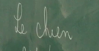 Le chien